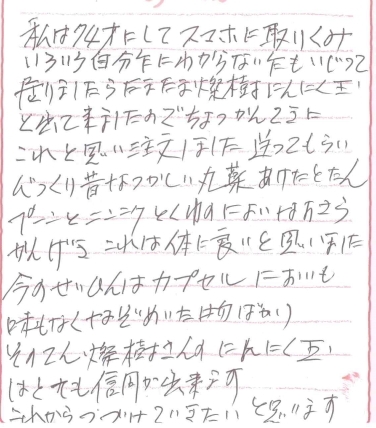 私は74才にしてスマホに取りくみ
いろいろ自分なりにわからないなもいじって
居りましたらたまたま燦樹さにんにく玉
と出て来ましたのでちょっかん的に
これと思い注文しました 送ってもらい
びっくり昔なつかしい丸薬あけたとたん
プーンとニンニクとくゆのにおいはなさら
かんげき これは体に良いと思いました
今のせいひんはカプセル においも
味もなくなぞめいた物ばかり
その点 燦樹さんの にんにく玉
はとても信用が出来ます
これからつづけていきたいと思います